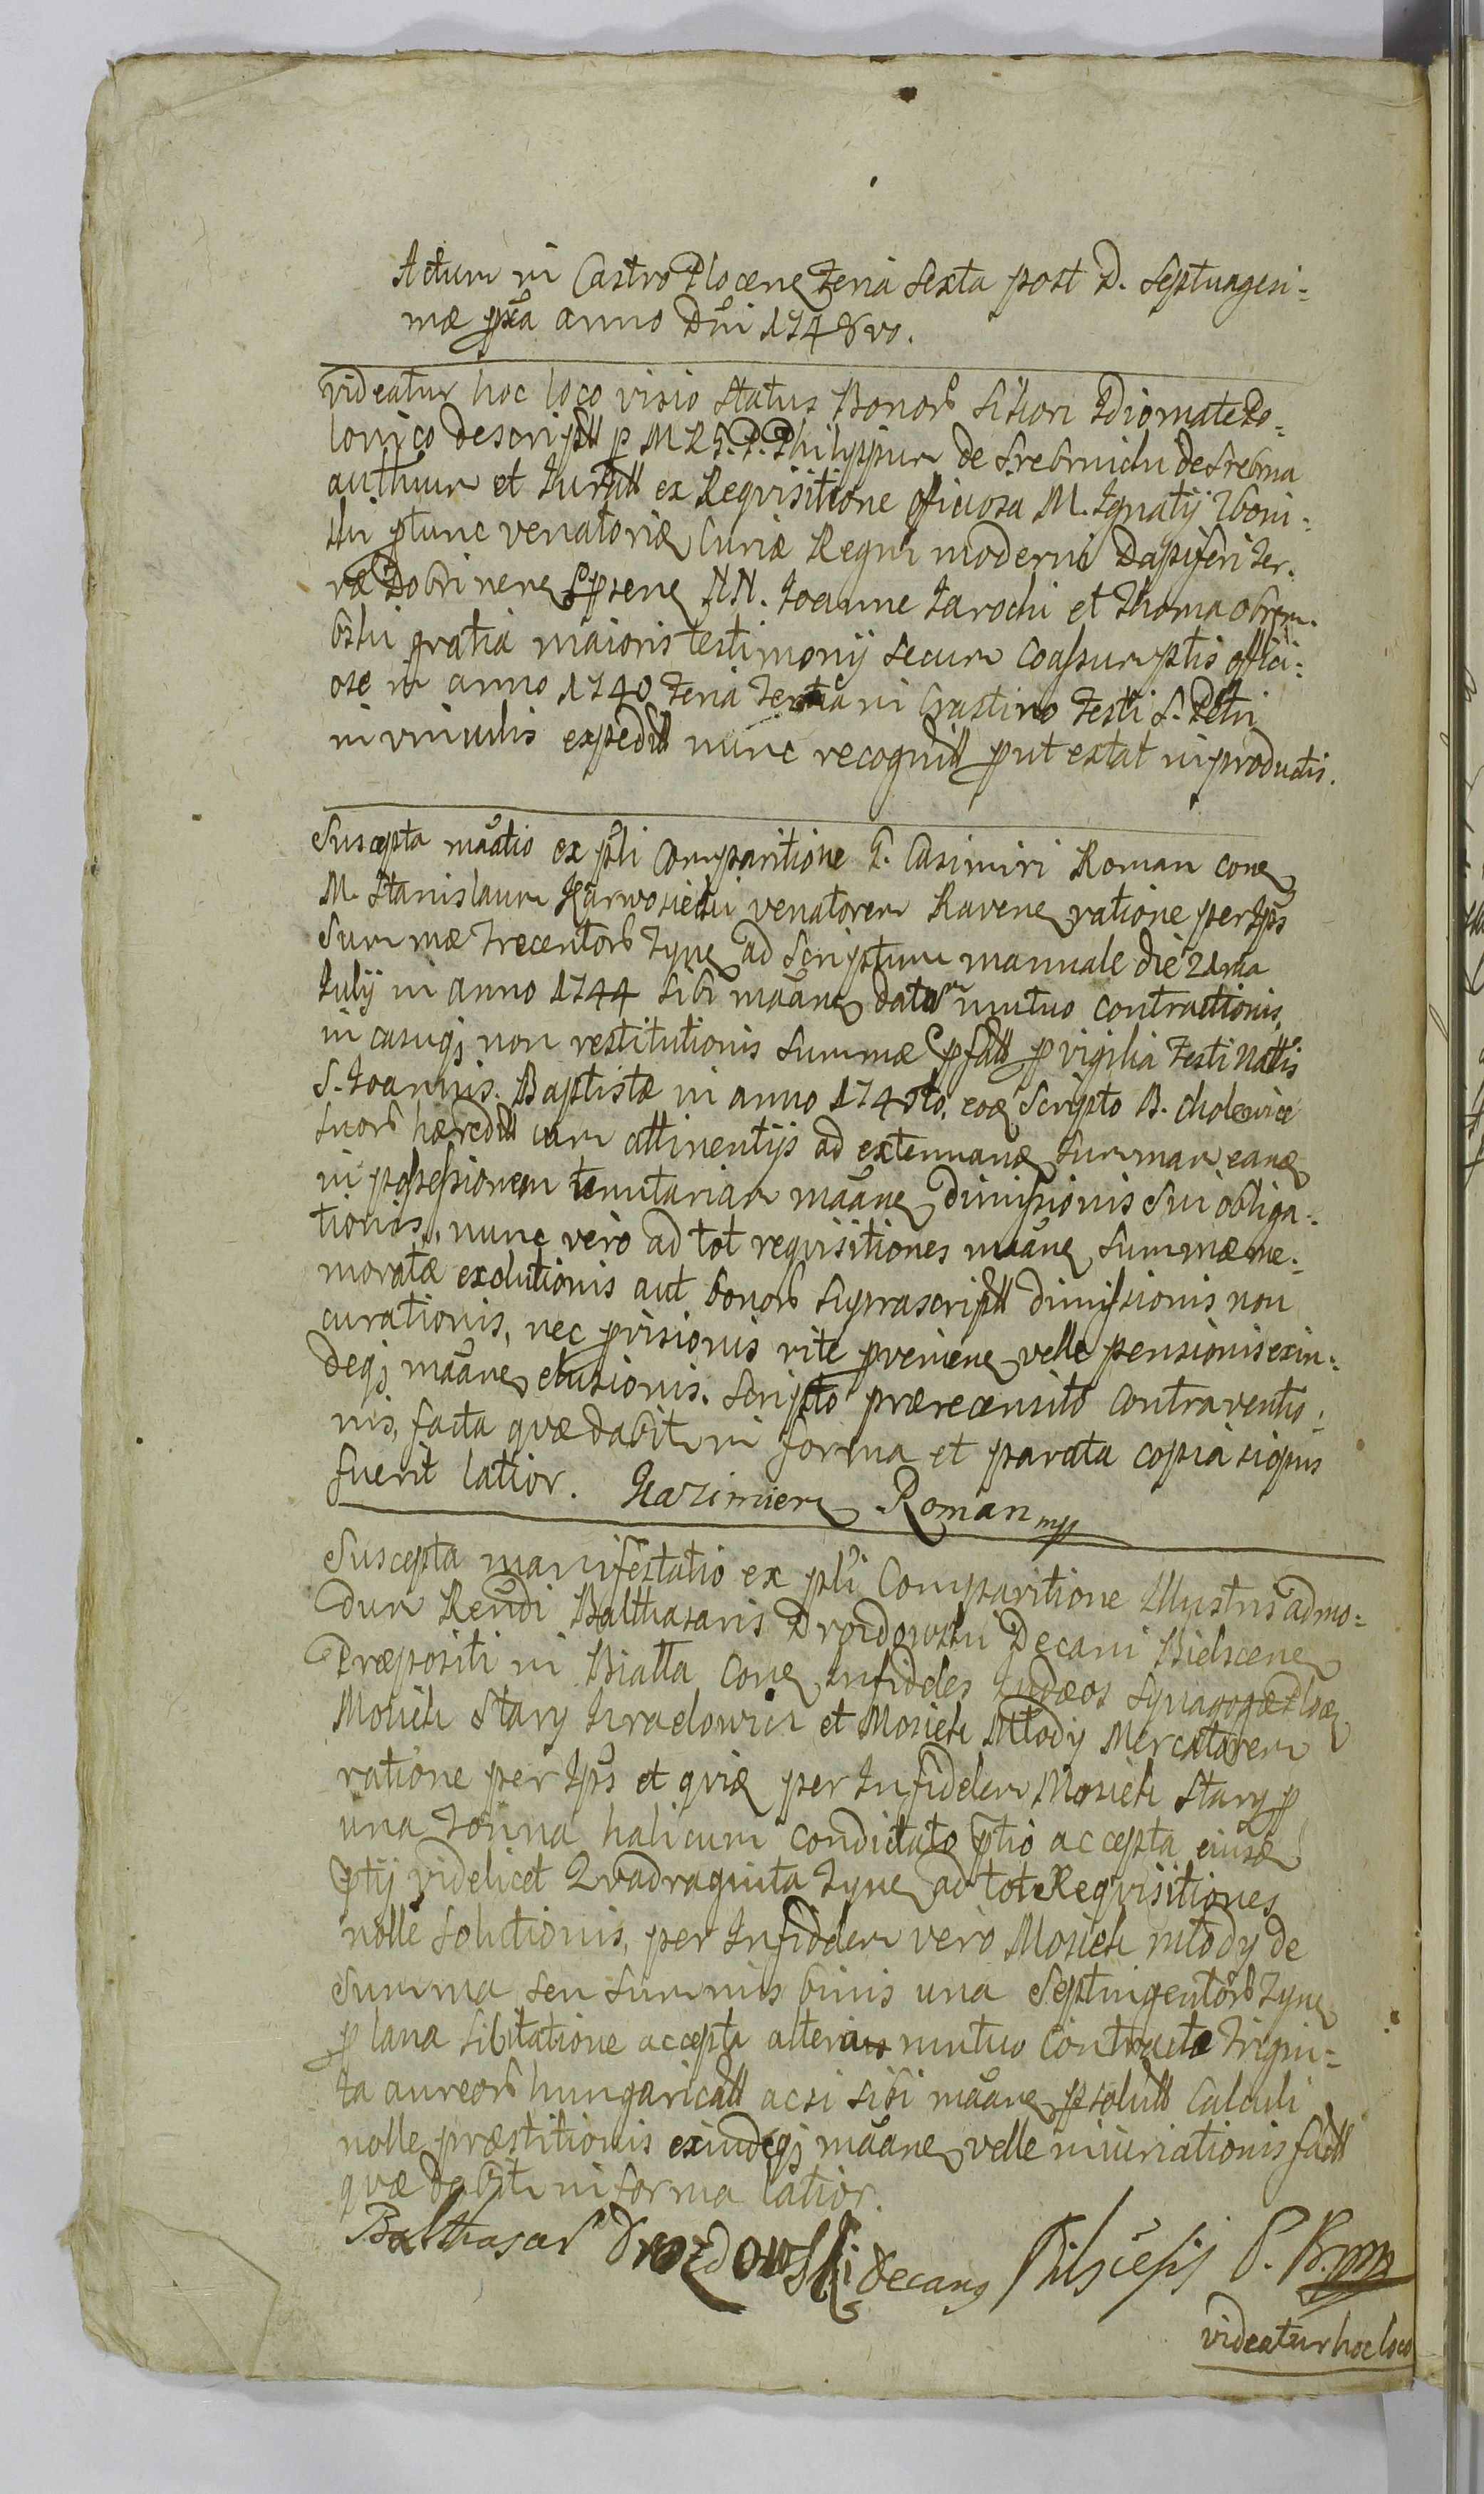 Actum in Castro Plocen Feria Sexta post D. Septuagesi=
mæ pxa anno Dni 1748vo.
videatur hoc loco visio Status Bonor Sikori Idiomate Po=
lonico descript p M R G. P. Philyppum de Srebrnichi de Srebrna
authum et Jurat ex Requisitione officiosa M. Ignatij Zboni=
ski ptunc venatoriæ Curiæ Regni moderni Dapiferi Ter=
ræ Dobrinen Spsene NN. Joanne Jarochi et Thoma Obrem=
bski gratia maioris testimonij Secum Coassumptis offici=
ose in anno 1740 Feria Tertia in Crastino Festi S. Petri
in vinculis expedit nunc recognit put extat in productis.
Suscepta maatio ex psli Comparitione G. Casimiri Roman con
M. Stanislaum Karwosiecki venatorem Raven ratione per Ips
Summæ Trecentor Tyn ad Scriptum manuale die 21ma
Julij in anno 1744 Sibi maan dato mutuo contractionis,
in casuq; non restitutionis Summæ psatt p vigilia Festi Natts
S. Joannis Baptistæ in anno 1745to. eoq Scripto B. Cholewice
Suor hæredit cum attinentijs ad extenuan Summam eanq
in possessionem tenutariam maan dimissionis Sui obliga=
tionis, nunc vero ad tot requisitiones maan Summæ me=
moratæ exolutionis aut bonor Suprascript dimissionis non
curationis, nec provisionis rite provenien velle pensionis exin=
deq; maan elusionis. Scripto prærecensito Contraventio=
nis, facta quæ dabitr in forma et parata copia si opus
fuerit latior. Kazimierz Roman mp
Suscepta manifestatio ex psli Comparitione Illustris admo=
dum Rendi Balthasaris Drozdowski Decani Bielscen
Præpositi in Bialla con Infideles Judæos Synagogæ Plocen
Mosiek Stary Izraelowicz et Mosiek Młody Mercatorem
ratione per Ips et quiq per Infidelem Mosiek Stary p
una Tonna halicum condictato ptio accepta eiusq
ptij videlicet Quadraginta Tyn ad tot Requisitiones
nolle Solutionis, per Infidelem vero Mosiek młody de
Summa Seu Summis binis una Septingentor Tyn
p lana Sibi ratione accepta altera mutuo contracta Trigin=
ta aureor hungaricall ac si Sibi maan psolut Calculi
nolle præstitionis exindeq; maan velle iniuriationis fact
quæ dabitr in forma latior.
Balthasar Drozdowski Decang Bilscesis P. B. mp
videatur hoc loco